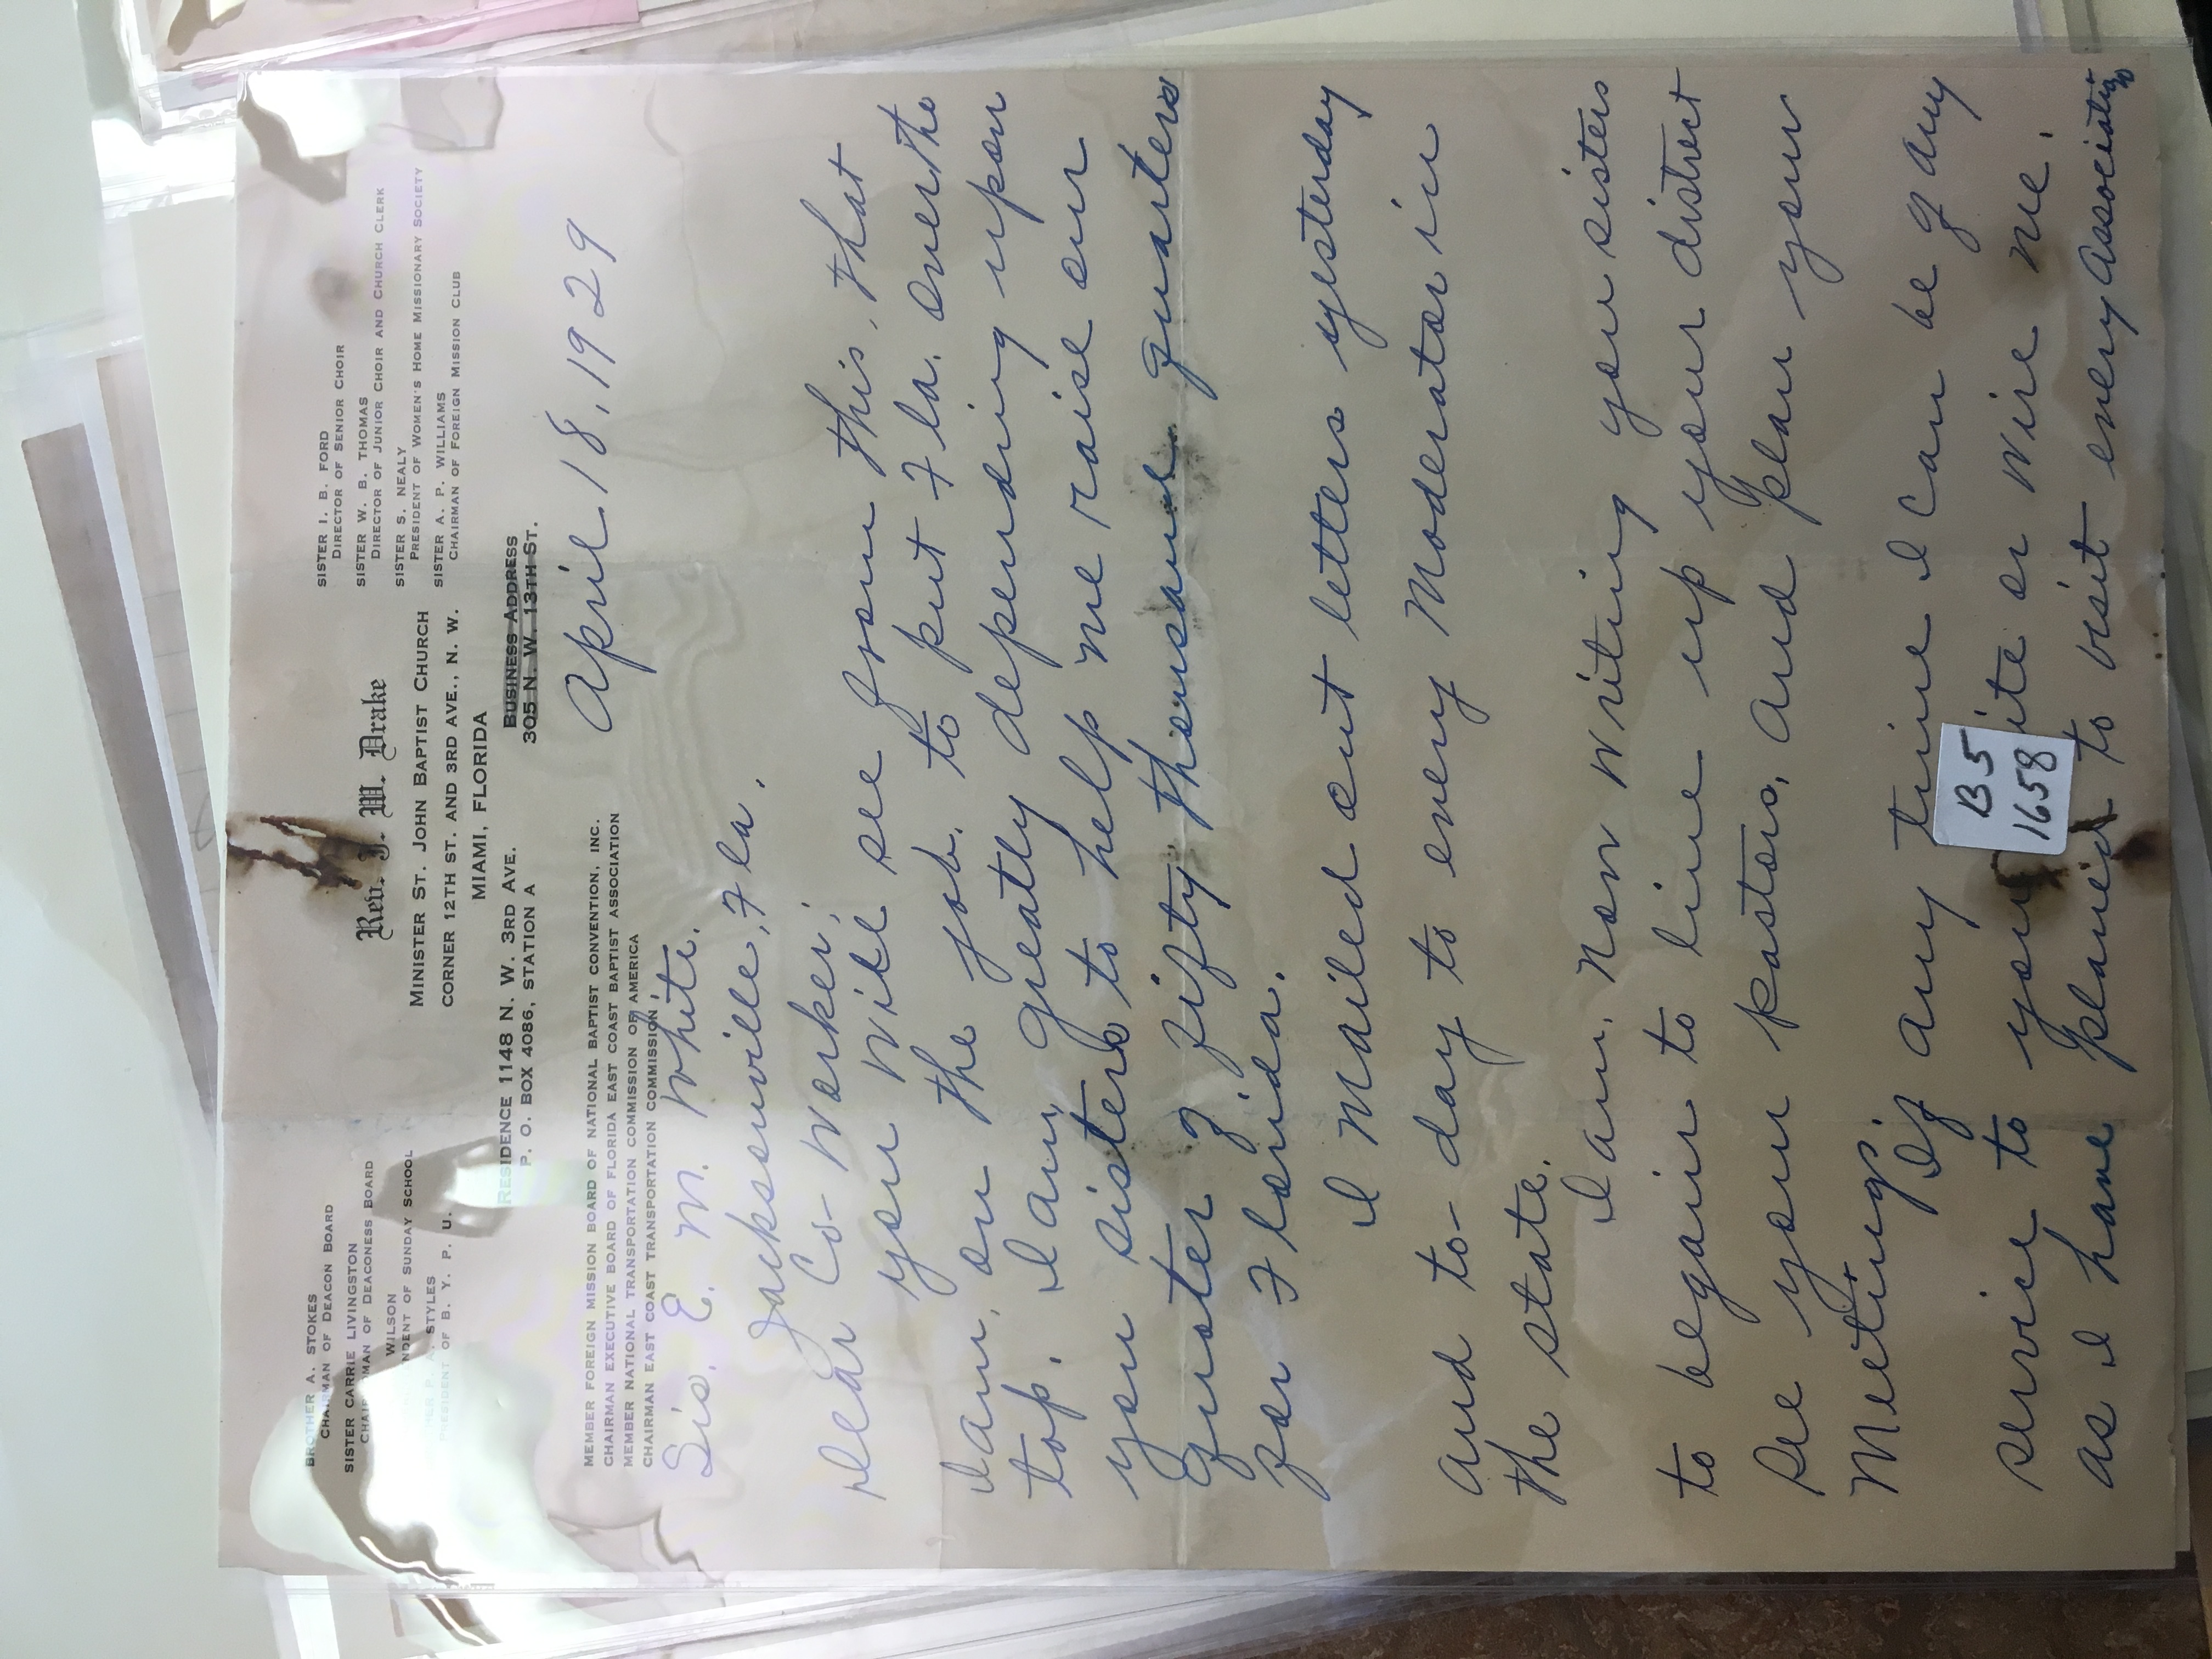 BROTHER A. STOKES
CHAIRMAN OF DEACON BOARD
SISTER CARRIE LIVINGSTON
CHAIRWOMAN OF DEACONESS BOARD
WILSON
OF SUNDAY SCHOOL
STYLES
PRESIDENT OF B. Y. P. U.
Rev. J. W. Drake
MINISTER ST. JOHN BAPTIST CHURCH
CORNER 12TH ST. AND 3RD AVE., N. W.
MIAMI, FLORIDA
SISTER I. B. FORD
DIRECTOR OF SENIOR CHOIR
SISTER W. B. THOMAS
DIRECTOR OF JUNIOR CHOIR AND CHURCH CLERK
SISTER S. NEALY
PRESIDENT OF WOMEN'S HOME MISSIONARY SOCIETY
SISTER A. P. WILLIAMS
CHAIRMAN OF FOREIGN MISSION CLUB
RESIDENCE 1148 N. W. 3RD AVE.
P. O. BOX 4086, STATION A
BUSINESS ADDRESS
305 N. W. 13TH ST.
MEMBER FOREIGN MISSION BOARD OF NATIONAL BAPTIST CONVENTION, INC.
CHAIRMAN EXECUTIVE BOARD OF FLORIDA EAST COAST BAPTIST ASSOCIATION
MEMBER NATIONAL TRANSPORTATION COMMISSION OF AMERICA
CHAIRMAN EAST COAST TRANSPORTATION COMMISSION
April 18, 1929
Sis. E. M. White.
Jacksonville, Fla,
Dear Co-Worker;
you will see from this, that
I am, on the job. to put Fla. over the
top. I am, greatly depending upon
you sisters to help me raise our
quoter of fifty thousand quarters
for Florida.
I mailed out letters yesterday
and to-day to every Moderator in
the state.
I am, now writing you sisters
to begain to line up your district
see your pastors, and plan your
Meetings.
If any time I can be of any
service to you ite or wire me.
as I have planed to visit every Association
B5
1658